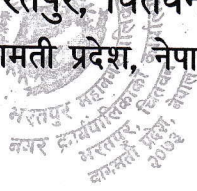 रतपुर, चितवन
मती प्रदेश, नेपा
भरतपुर महानगर
नगर कार्यपालिका
भरतपुर, चितवन
बागमती प्रदेश, नेपाल
२०७३